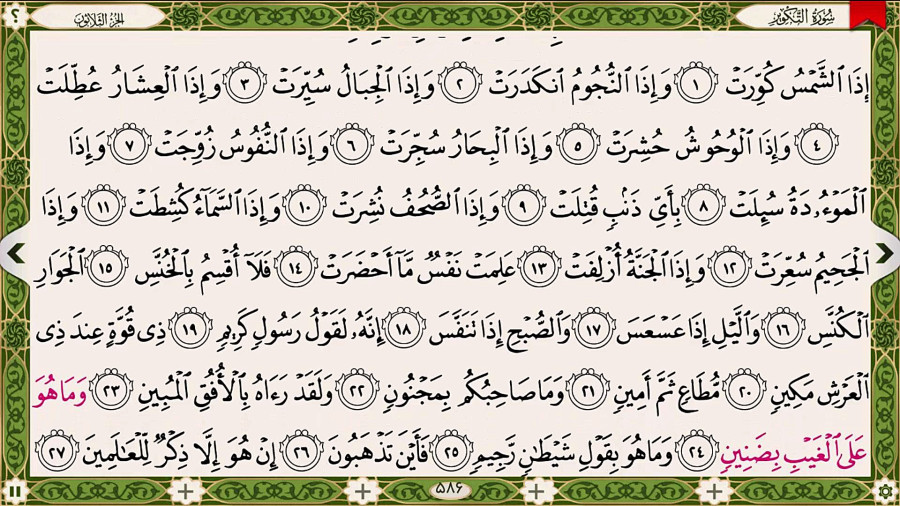 ؟ الجزء الثلاثون سورة التكوير
إِذَا الشَّمْسُ كُوِّرَتْ ١ وَإِذَا النُّجُومُ انكَدَرَتْ ٢ وَإِذَا الْجِبَالُ سُيِّرَتْ ٣ وَإِذَا الْعِشَارُ عُطِّلَتْ
٤ وَإِذَا الْوُحُوشُ حُشِرَتْ ٥ وَإِذَا الْبِحَارُ سُجِّرَتْ ٦ وَإِذَا النُّفُوسُ زُوِّجَتْ ٧ وَإِذَا
الْمَوْءُۥدَةُ سُئِلَتْ ٨ بِأَيِّ ذَنۢبٍ قُتِلَتْ ٩ وَإِذَا الصُّحُفُ نُشِرَتْ ١٠ وَإِذَا السَّمَآءُ كُشِطَتْ ١١ وَإِذَا
الْجَحِيمُ سُعِّرَتْ ١٢ وَإِذَا الْجَنَّةُ أُزْلِفَتْ ١٣ عَلِمَتْ نَفْسٌ مَّآ أَحْضَرَتْ ١٤ فَلَآ أُقْسِمُ بِالْخُنَّسِ ١٥ الْجَوَارِ
الْكُنَّسِ ١٦ وَالَّيْلِ إِذَا عَسْعَسَ ١٧ وَالصُّبْحِ إِذَا تَنَفَّسَ ١٨ إِنَّهُۥ لَقَوْلُ رَسُولٍ كَرِيمٍ ١٩ ذِى قُوَّةٍ عِندَ ذِى
الْعَرْشِ مَكِينٍ ٢٠ مُّطَاعٍ ثَمَّ أَمِينٍ ٢١ وَمَا صَاحِبُكُم بِمَجْنُونٍ ٢٢ وَلَقَدْ رَءَاهُ بِالْأُفُقِ الْمُبِينِ ٢٣ وَمَا هُوَ
عَلَى الْغَيْبِ بِضَنِينٍ ٢٤ وَمَا هُوَ بِقَوْلِ شَيْطَٰنٍ رَّجِيمٍ ٢٥ فَأَيْنَ تَذْهَبُونَ ٢٦ إِنْ هُوَ إِلَّا ذِكْرٌ لِّلْعَٰلَمِينَ ٢٧
٥٨۶